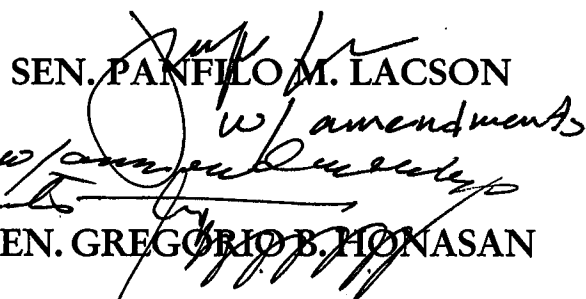 SEN. PANFILO M. LACSON
w/ amendments
w/ amendments
EN. GREGORIO B. HONASAN